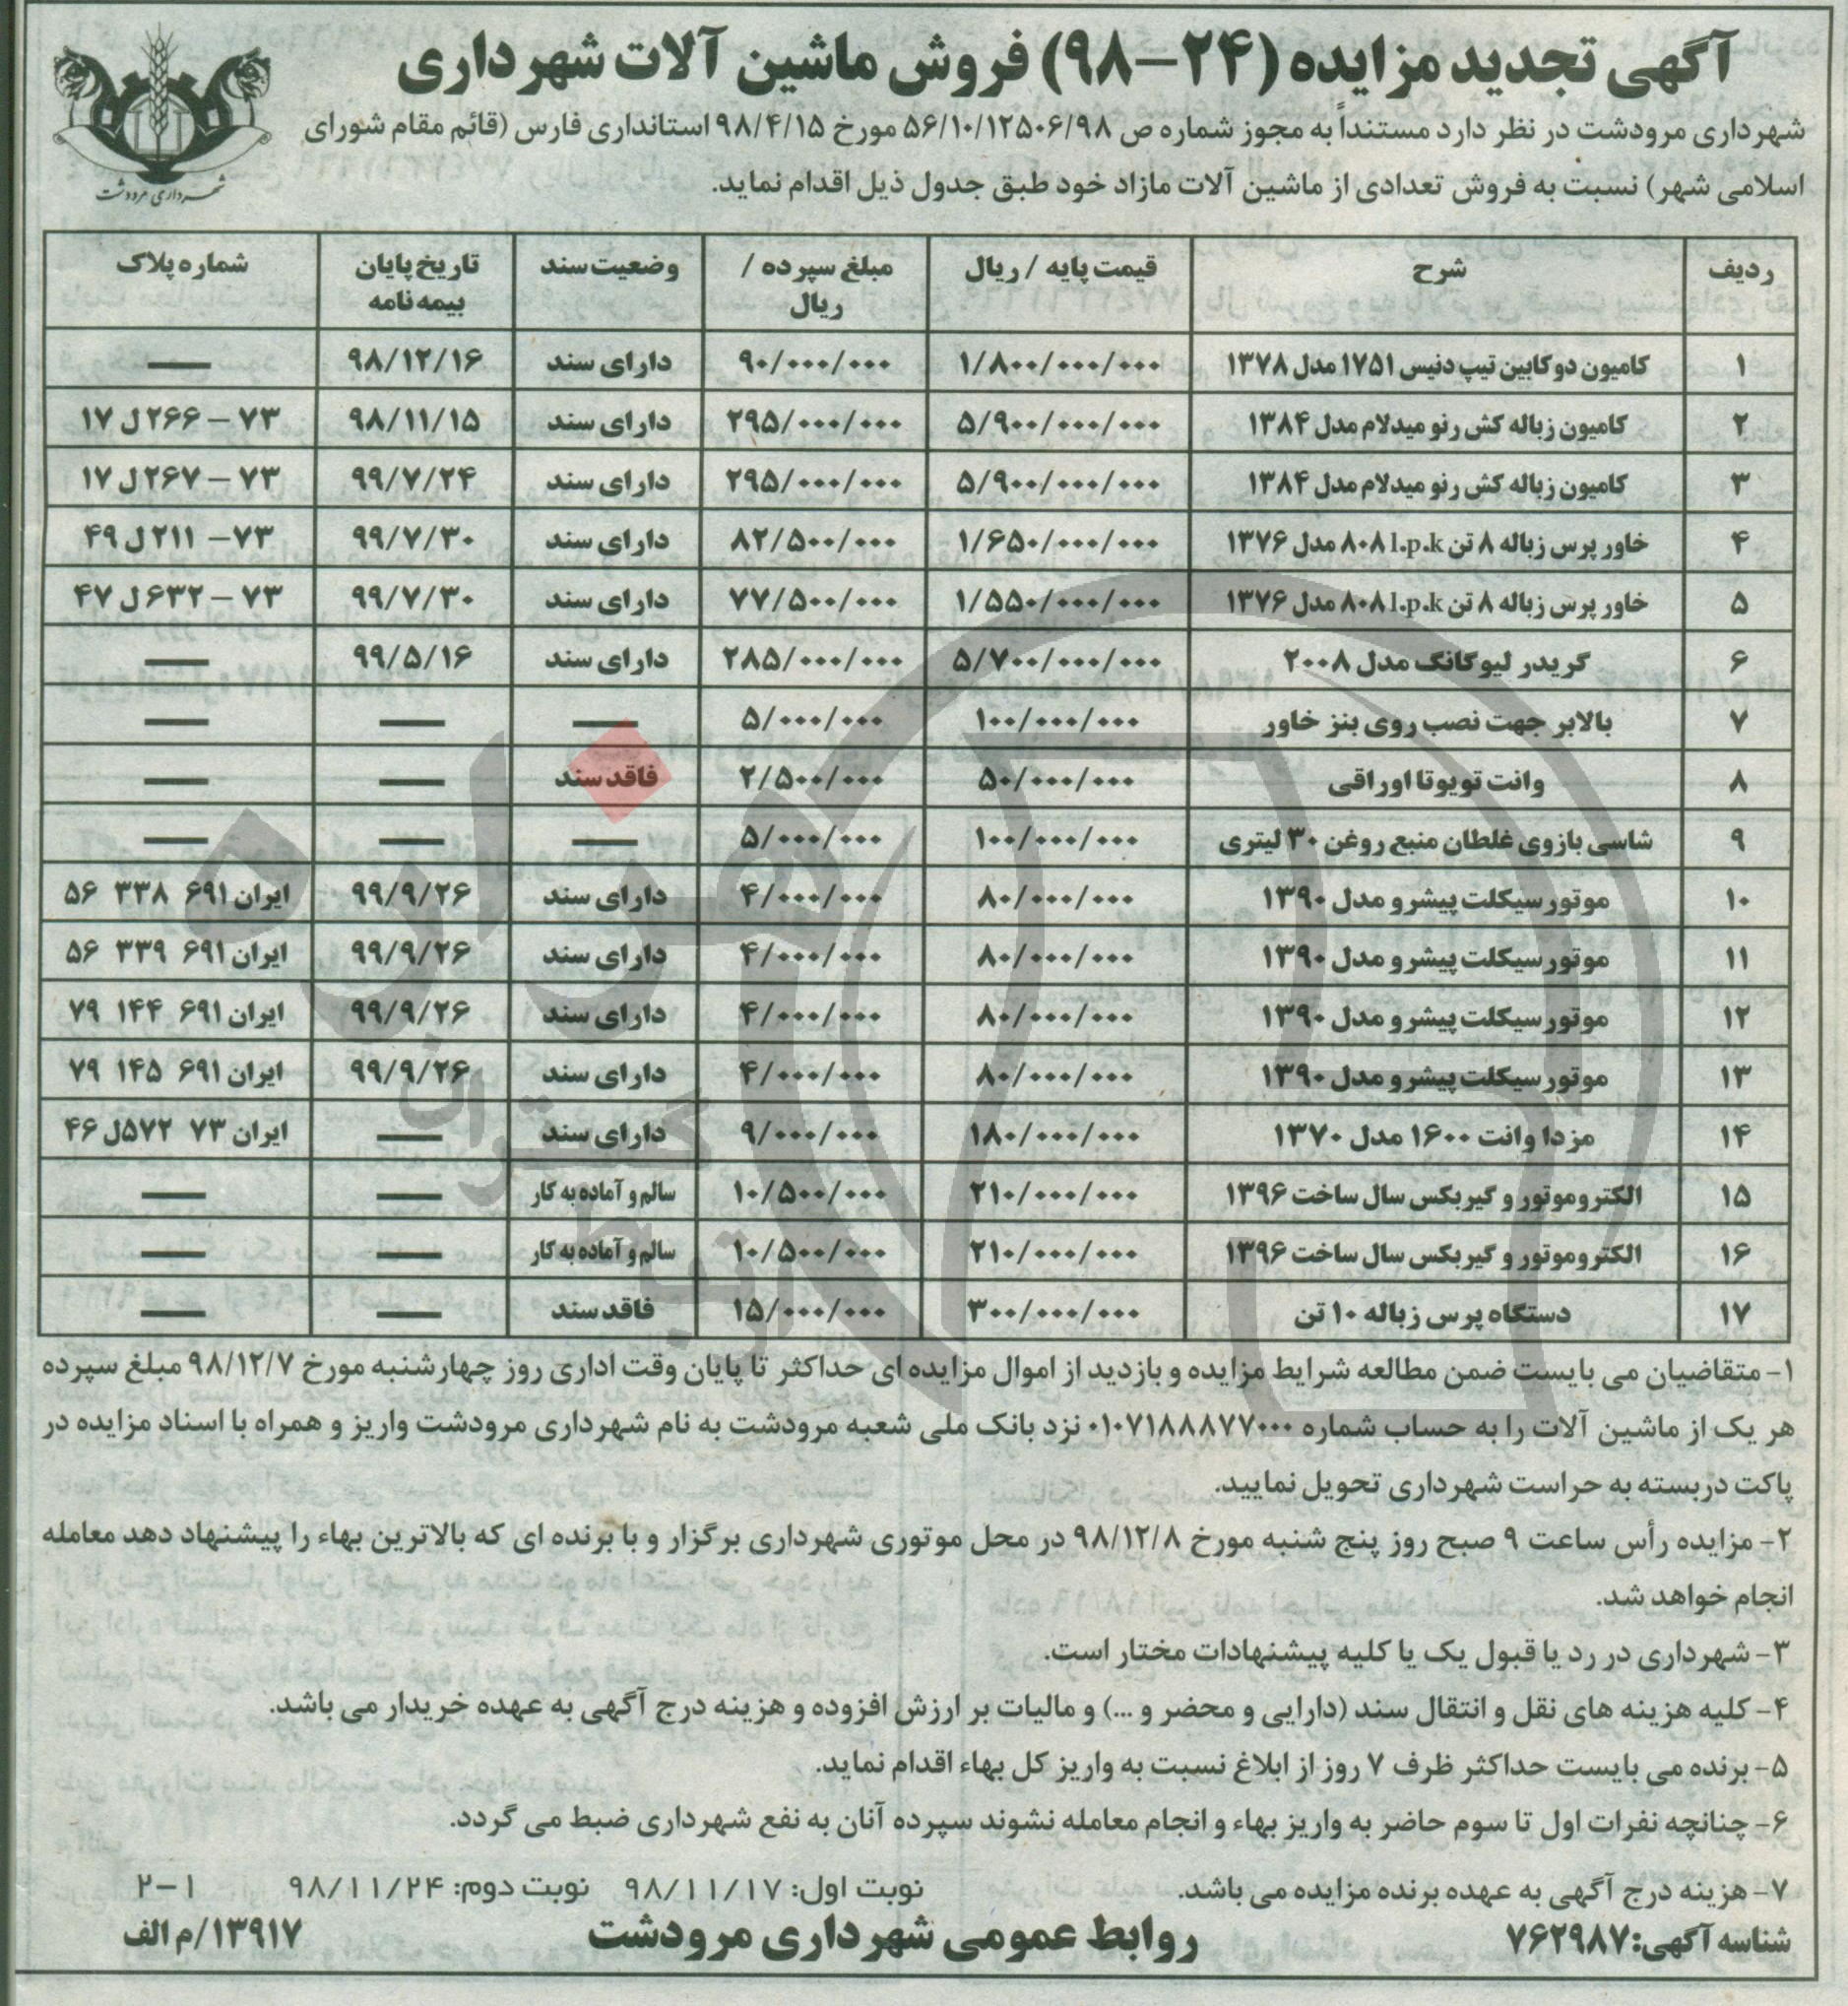 آگهی تجدید مزایده (۲۴-۹۸) فروش ماشین آلات شهرداری
شهرداری مرودشت
شهرداری مرودشت در نظر دارد مستنداً به مجوز شماره ص ۵۶/۱۰/۱۲۵۰۶/۹۸ مورخ ۹۸/۴/۱۵ استانداری فارس (قائم مقام شورای
اسلامی شهر) نسبت به فروش تعدادی از ماشین آلات مازاد خود طبق جدول ذیل اقدام نماید.
ردیف شرح قیمت پایه / ریال مبلغ سپرده / ریال وضعیت سند تاریخ پایان بیمه نامه شماره پلاک
۱ کامیون دوکابین تیپ دنیس ۱۷۵۱ مدل ۱۳۷۸ ۱/۸۰۰/۰۰۰/۰۰۰ ۹۰/۰۰۰/۰۰۰ دارای سند ۹۸/۱۲/۱۶ —
۲ کامیون زباله کش رنو میدلام مدل ۱۳۸۴ ۵/۹۰۰/۰۰۰/۰۰۰ ۲۹۵/۰۰۰/۰۰۰ دارای سند ۹۸/۱۱/۱۵ ۷۳ – ۲۶۶ ل ۱۷
۳ کامیون زباله کش رنو میدلام مدل ۱۳۸۴ ۵/۹۰۰/۰۰۰/۰۰۰ ۲۹۵/۰۰۰/۰۰۰ دارای سند ۹۹/۷/۲۴ ۷۳ – ۲۶۷ ل ۱۷
۴ خاور پرس زباله ۸ تن l.p.k ۸۰۸ مدل ۱۳۷۶ ۱/۶۵۰/۰۰۰/۰۰۰ ۸۲/۵۰۰/۰۰۰ دارای سند ۹۹/۷/۳۰ ۷۳ – ۲۱۱ ل ۴۹
۵ خاور پرس زباله ۸ تن l.p.k ۸۰۸ مدل ۱۳۷۶ ۱/۵۵۰/۰۰۰/۰۰۰ ۷۷/۵۰۰/۰۰۰ دارای سند ۹۹/۷/۳۰ ۷۳ – ۶۳۲ ل ۴۷
۶ گریدر لیوگانگ مدل ۲۰۰۸ ۵/۷۰۰/۰۰۰/۰۰۰ ۲۸۵/۰۰۰/۰۰۰ دارای سند ۹۹/۵/۱۶ —
۷ بالابر جهت نصب روی بنز خاور ۱۰۰/۰۰۰/۰۰۰ ۵/۰۰۰/۰۰۰ — — —
۸ وانت تویوتا اوراقی ۵۰/۰۰۰/۰۰۰ ۲/۵۰۰/۰۰۰ فاقد سند — —
۹ شاسی بازوی غلطان منبع روغن ۳۰ لیتری ۱۰۰/۰۰۰/۰۰۰ ۵/۰۰۰/۰۰۰ — — —
۱۰ موتور سیکلت پیشرو مدل ۱۳۹۰ ۸۰/۰۰۰/۰۰۰ ۴/۰۰۰/۰۰۰ دارای سند ۹۹/۹/۲۶ ایران ۶۹۱ ۳۳۸ ۵۶
۱۱ موتور سیکلت پیشرو مدل ۱۳۹۰ ۸۰/۰۰۰/۰۰۰ ۴/۰۰۰/۰۰۰ دارای سند ۹۹/۹/۲۶ ایران ۶۹۱ ۳۳۹ ۵۶
۱۲ موتور سیکلت پیشرو مدل ۱۳۹۰ ۸۰/۰۰۰/۰۰۰ ۴/۰۰۰/۰۰۰ دارای سند ۹۹/۹/۲۶ ایران ۶۹۱ ۱۴۴ ۷۹
۱۳ موتور سیکلت پیشرو مدل ۱۳۹۰ ۸۰/۰۰۰/۰۰۰ ۴/۰۰۰/۰۰۰ دارای سند ۹۹/۹/۲۶ ایران ۶۹۱ ۱۴۵ ۷۹
۱۴ مزدا وانت ۱۶۰۰ مدل ۱۳۷۰ ۱۸۰/۰۰۰/۰۰۰ ۹/۰۰۰/۰۰۰ دارای سند — ایران ۷۳ ۵۷۲ل ۴۶
۱۵ الکتروموتور و گیربکس سال ساخت ۱۳۹۶ ۲۱۰/۰۰۰/۰۰۰ ۱۰/۵۰۰/۰۰۰ سالم و آماده به کار — —
۱۶ الکتروموتور و گیربکس سال ساخت ۱۳۹۶ ۲۱۰/۰۰۰/۰۰۰ ۱۰/۵۰۰/۰۰۰ سالم و آماده به کار — —
۱۷ دستگاه پرس زباله ۱۰ تن ۳۰۰/۰۰۰/۰۰۰ ۱۵/۰۰۰/۰۰۰ فاقد سند — —
۱- متقاضیان می بایست ضمن مطالعه شرایط مزایده و بازدید از اموال مزایده ای حداکثر تا پایان وقت اداری روز چهارشنبه مورخ ۹۸/۱۲/۷ مبلغ سپرده
هر یک از ماشین آلات را به حساب شماره ۰۱۰۷۱۸۸۸۷۷۰۰۰ نزد بانک ملی شعبه مرودشت به نام شهرداری مرودشت واریز و همراه با اسناد مزایده در
پاکت دربسته به حراست شهرداری تحویل نمایید.
۲- مزایده رأس ساعت ۹ صبح روز پنج شنبه مورخ ۹۸/۱۲/۸ در محل موتوری شهرداری برگزار و با برنده ای که بالاترین بهاء را پیشنهاد دهد معامله
انجام خواهد شد.
۳- شهرداری در رد یا قبول یک یا کلیه پیشنهادات مختار است.
۴- کلیه هزینه های نقل و انتقال سند (دارایی و محضر و ...) و مالیات بر ارزش افزوده و هزینه درج آگهی به عهده خریدار می باشد.
۵- برنده می بایست حداکثر ظرف ۷ روز از ابلاغ نسبت به واریز کل بهاء اقدام نماید.
۶- چنانچه نفرات اول تا سوم حاضر به واریز بهاء و انجام معامله نشوند سپرده آنان به نفع شهرداری ضبط می گردد.
۷- هزینه درج آگهی به عهده برنده مزایده می باشد. نوبت اول: ۹۸/۱۱/۱۷ نوبت دوم: ۹۸/۱۱/۲۴ ۱-۲
شناسه آگهی: ۷۶۲۹۸۷ روابط عمومی شهرداری مرودشت ۱۳۹۱۷/م الف